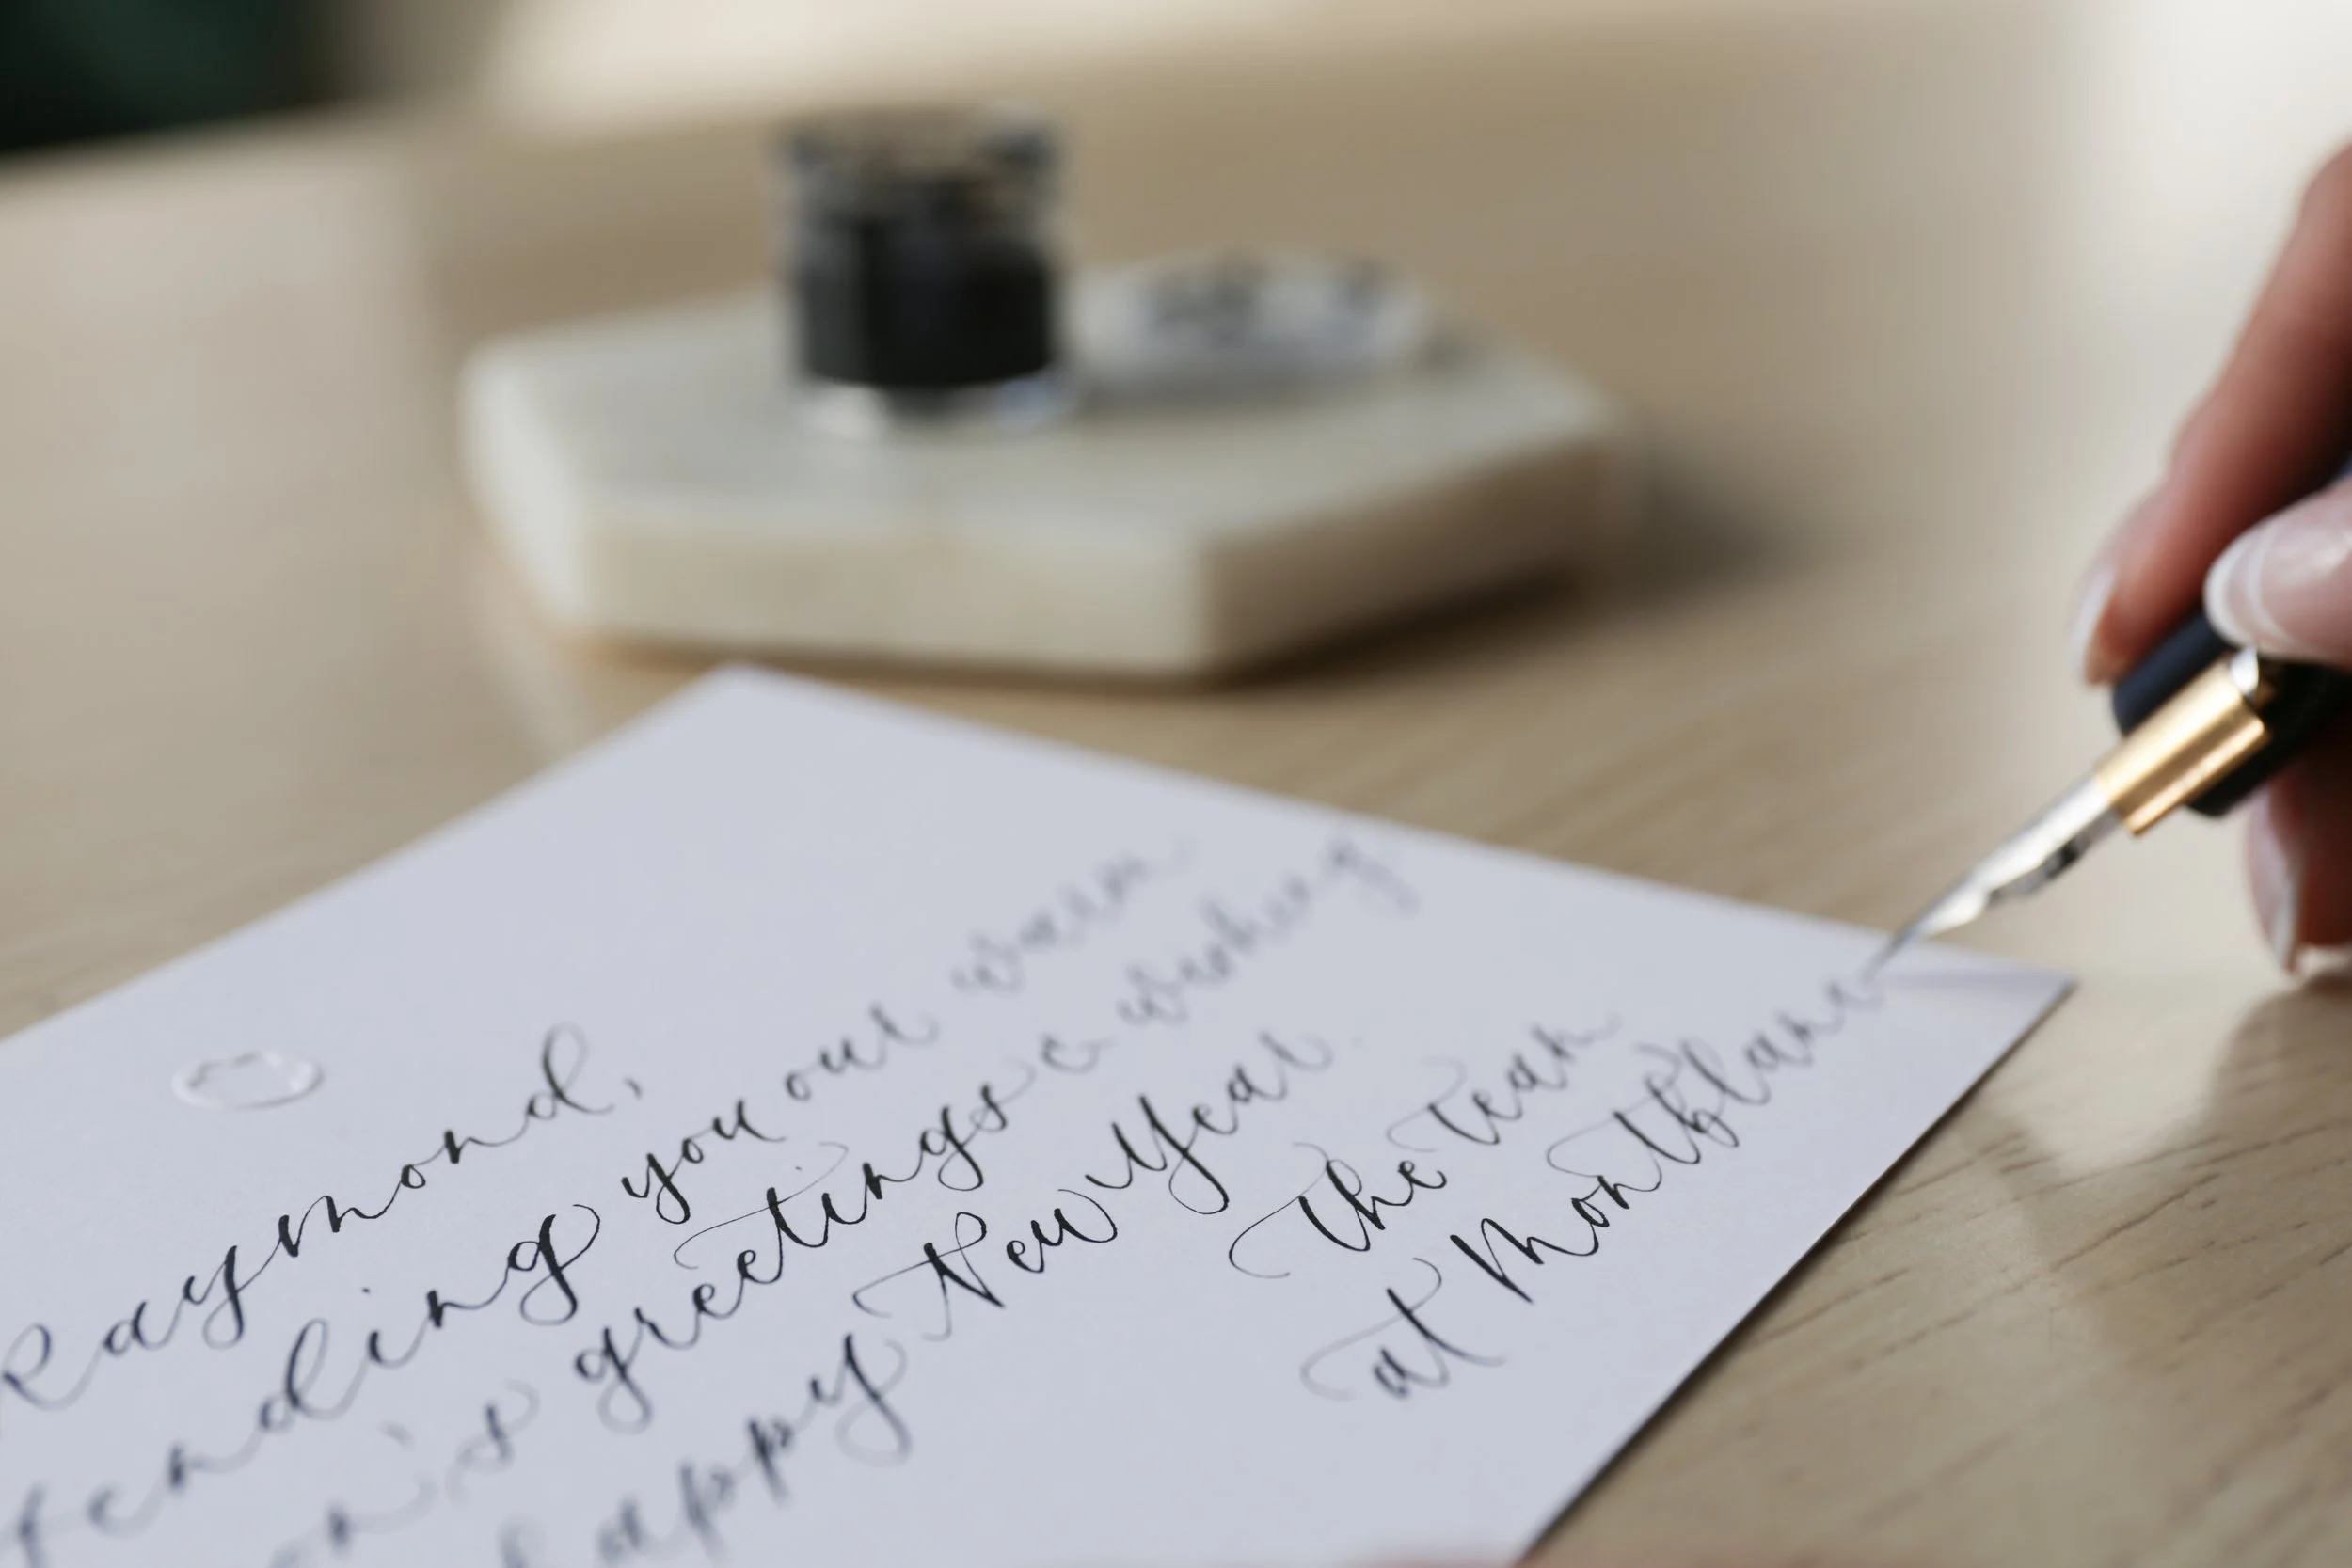 Raymond,
sending you our warm
greetings & wishing
happy New Year.
The team
at Montblanc